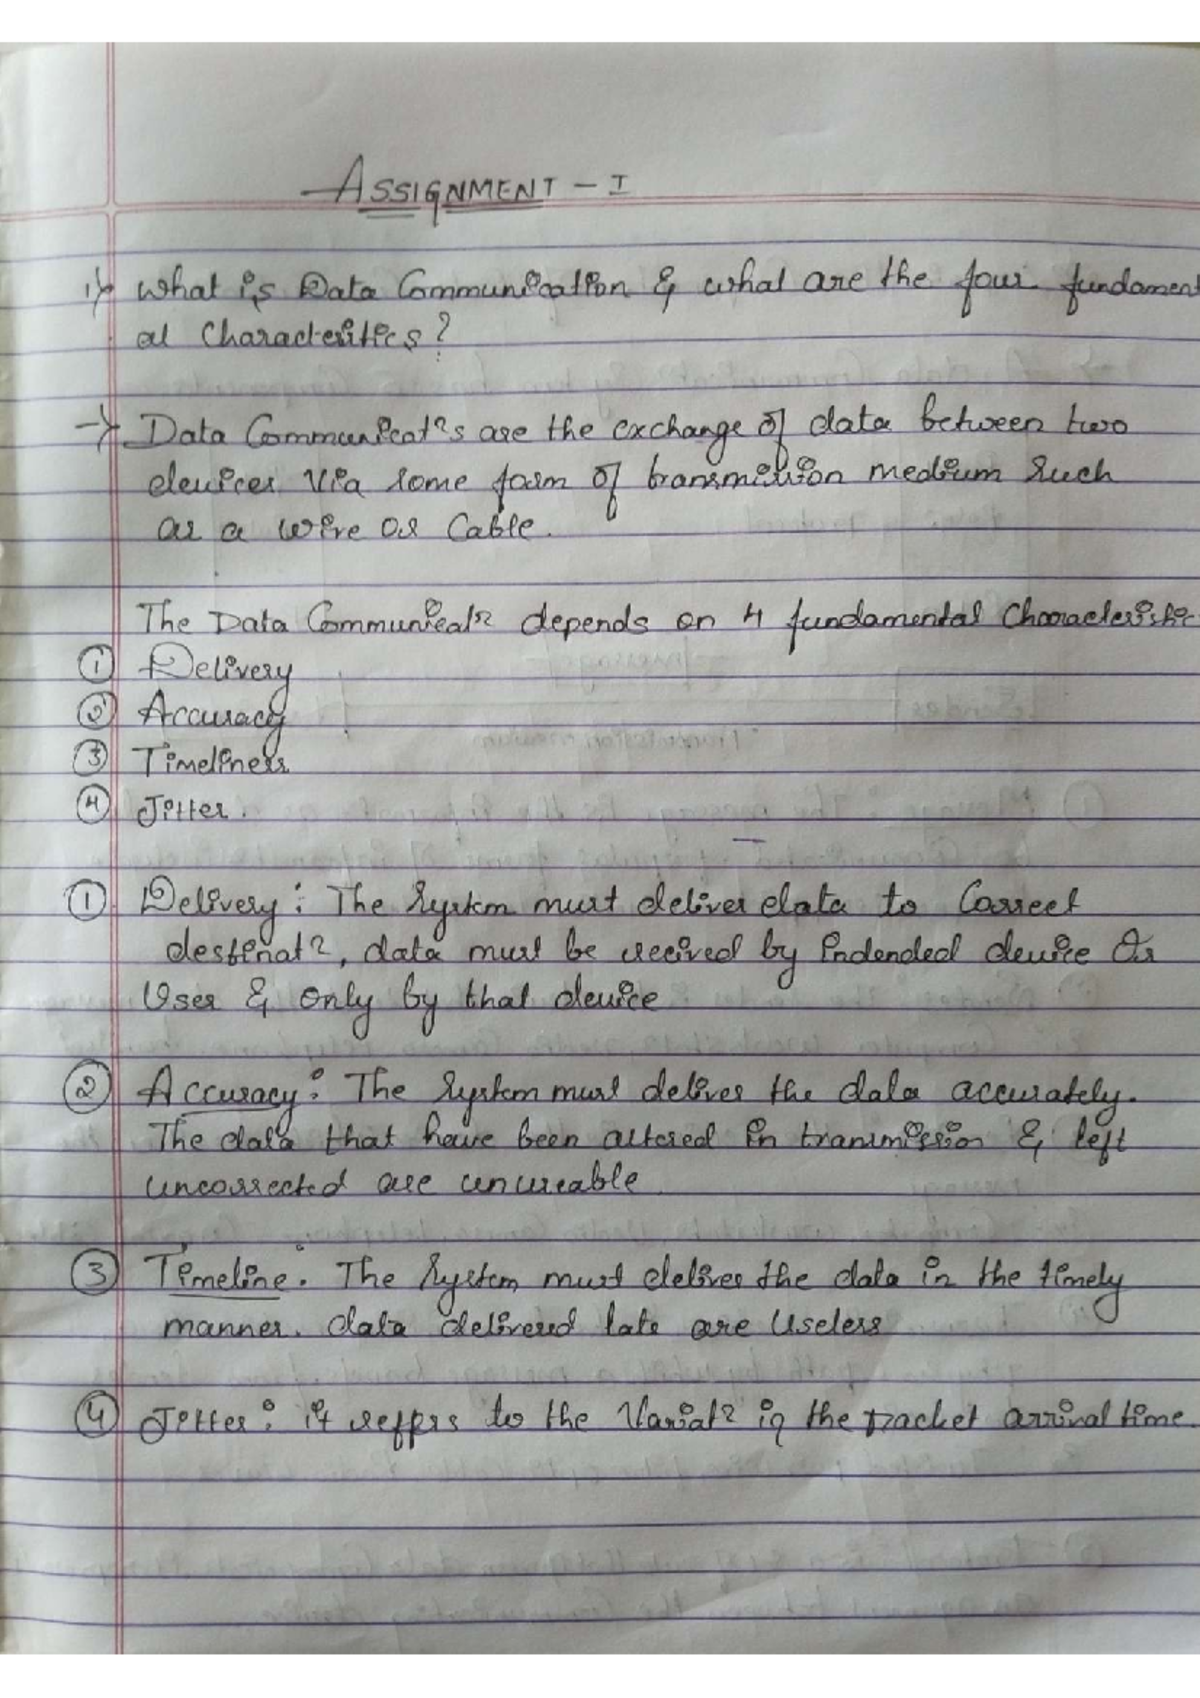 ASSIGNMENT - I
1) What is Data Communication & what are the four fundament
al Characteristics?
→ Data Communicatns are the exchange of data between two
devices via some form of transmission medium such
as a wire or Cable.
The Data Communicatn depends on 4 fundamental Characteristic
① Delivery
② Accuracy
③ Timeliness
④ Jitter.
① Delivery: The System must deliver data to Correct
destinatn, data must be recived by indended device Or
User & only by that device
② Accuracy: The System must deliver the data accurately.
The data that have been altered in transmission & left
uncorrected are unuseable
③ Timeline: The System must deliver the data in the timely
manner. data delivered late are Useless
④ Jitter: it reffers to the Variatn in the packet arrival time.